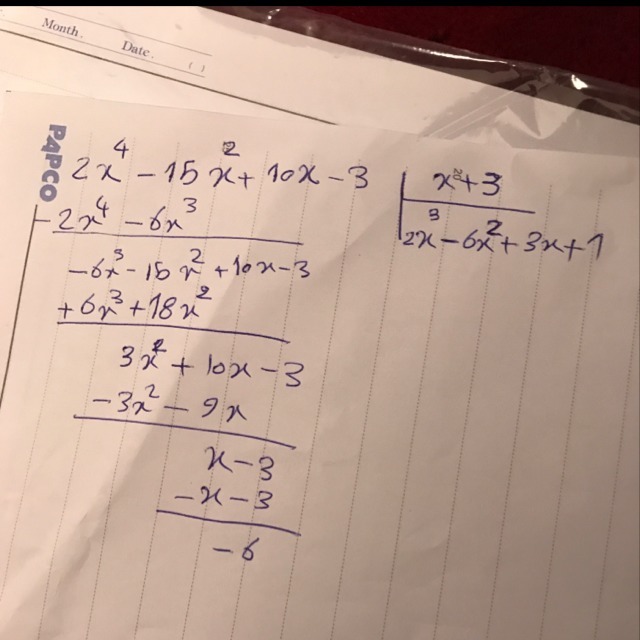 Month.
Date.
( )
PAPCO
2x⁴ - 15x² + 10x - 3
x + 3
- 2x⁴ - 6x³
2x³ - 6x² + 3x + 1
- 6x³ - 15x² + 10x - 3
+ 6x³ + 18x²
3x² + 10x - 3
- 3x² - 9x
x - 3
- x - 3
- 6